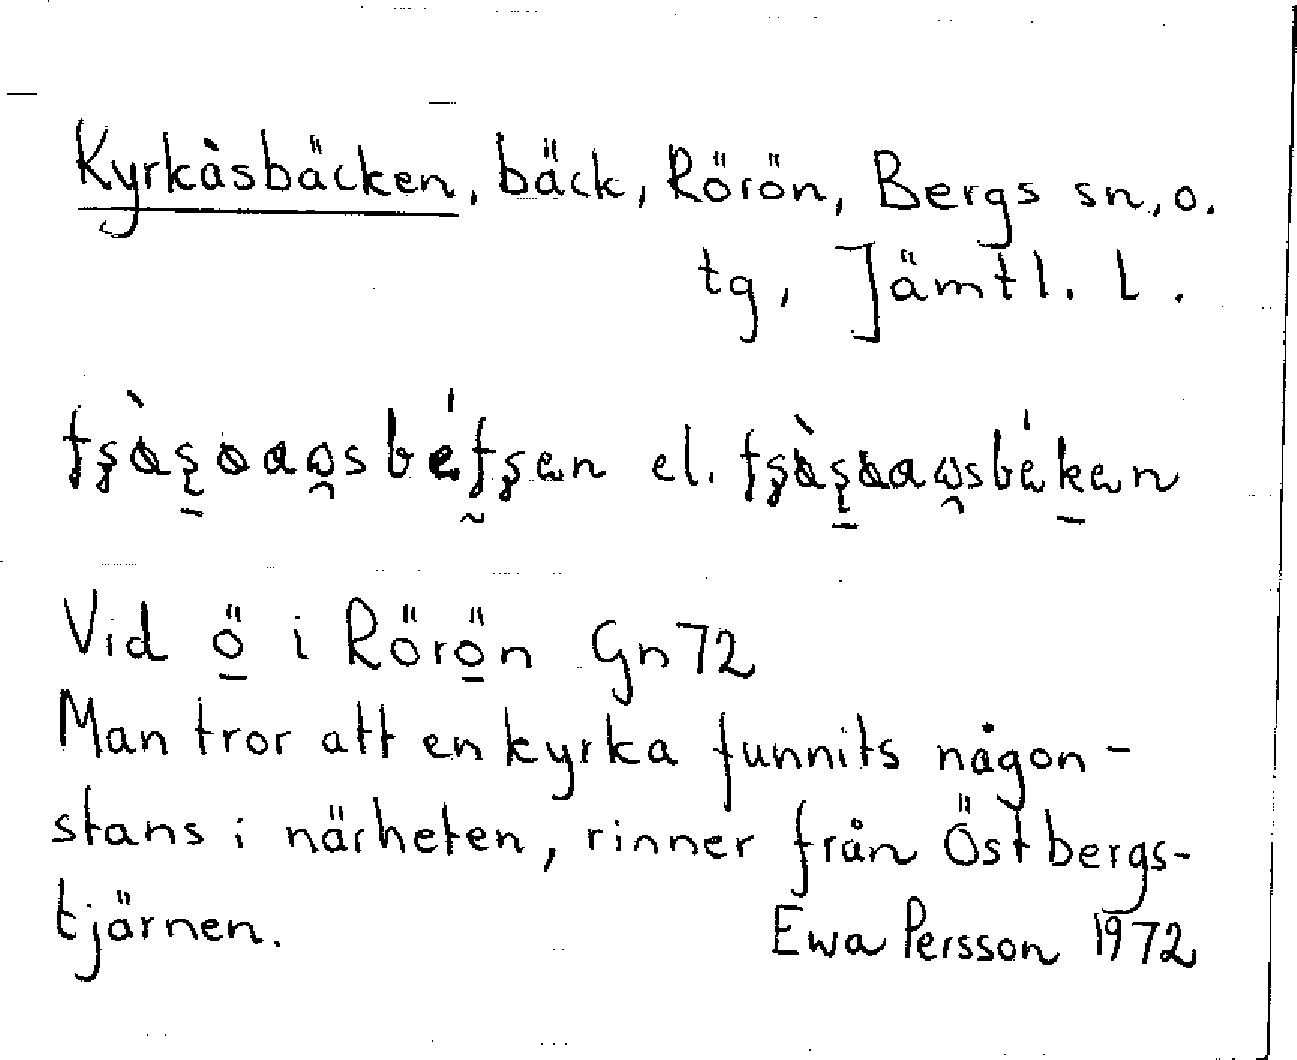 Kyrkåsbäcken, bäck, Rörön, Bergs sn, o.
tg, Jämtl. l.
el.
Vid ö i Rörön Gn 72
Man tror att en kyrka funnits någon-
stans i närheten, rinner från Östbergs-
tjärnen. Ewa Persson 1972